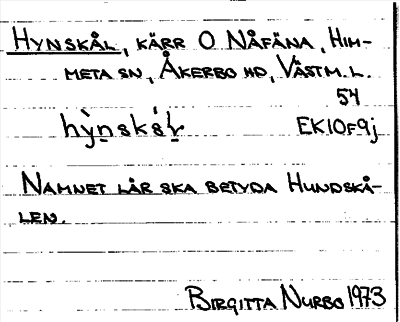 HYNSKÅL, KÄRR O NÅFÄNA, HIM-
META SN, ÅKERBO HD, VÄSTM. L.
54
EK10F9j
NAMNET LÄR SKA BETYDA HUNDSKÅ-
LEN.
BIRGITTA NURBO 1973